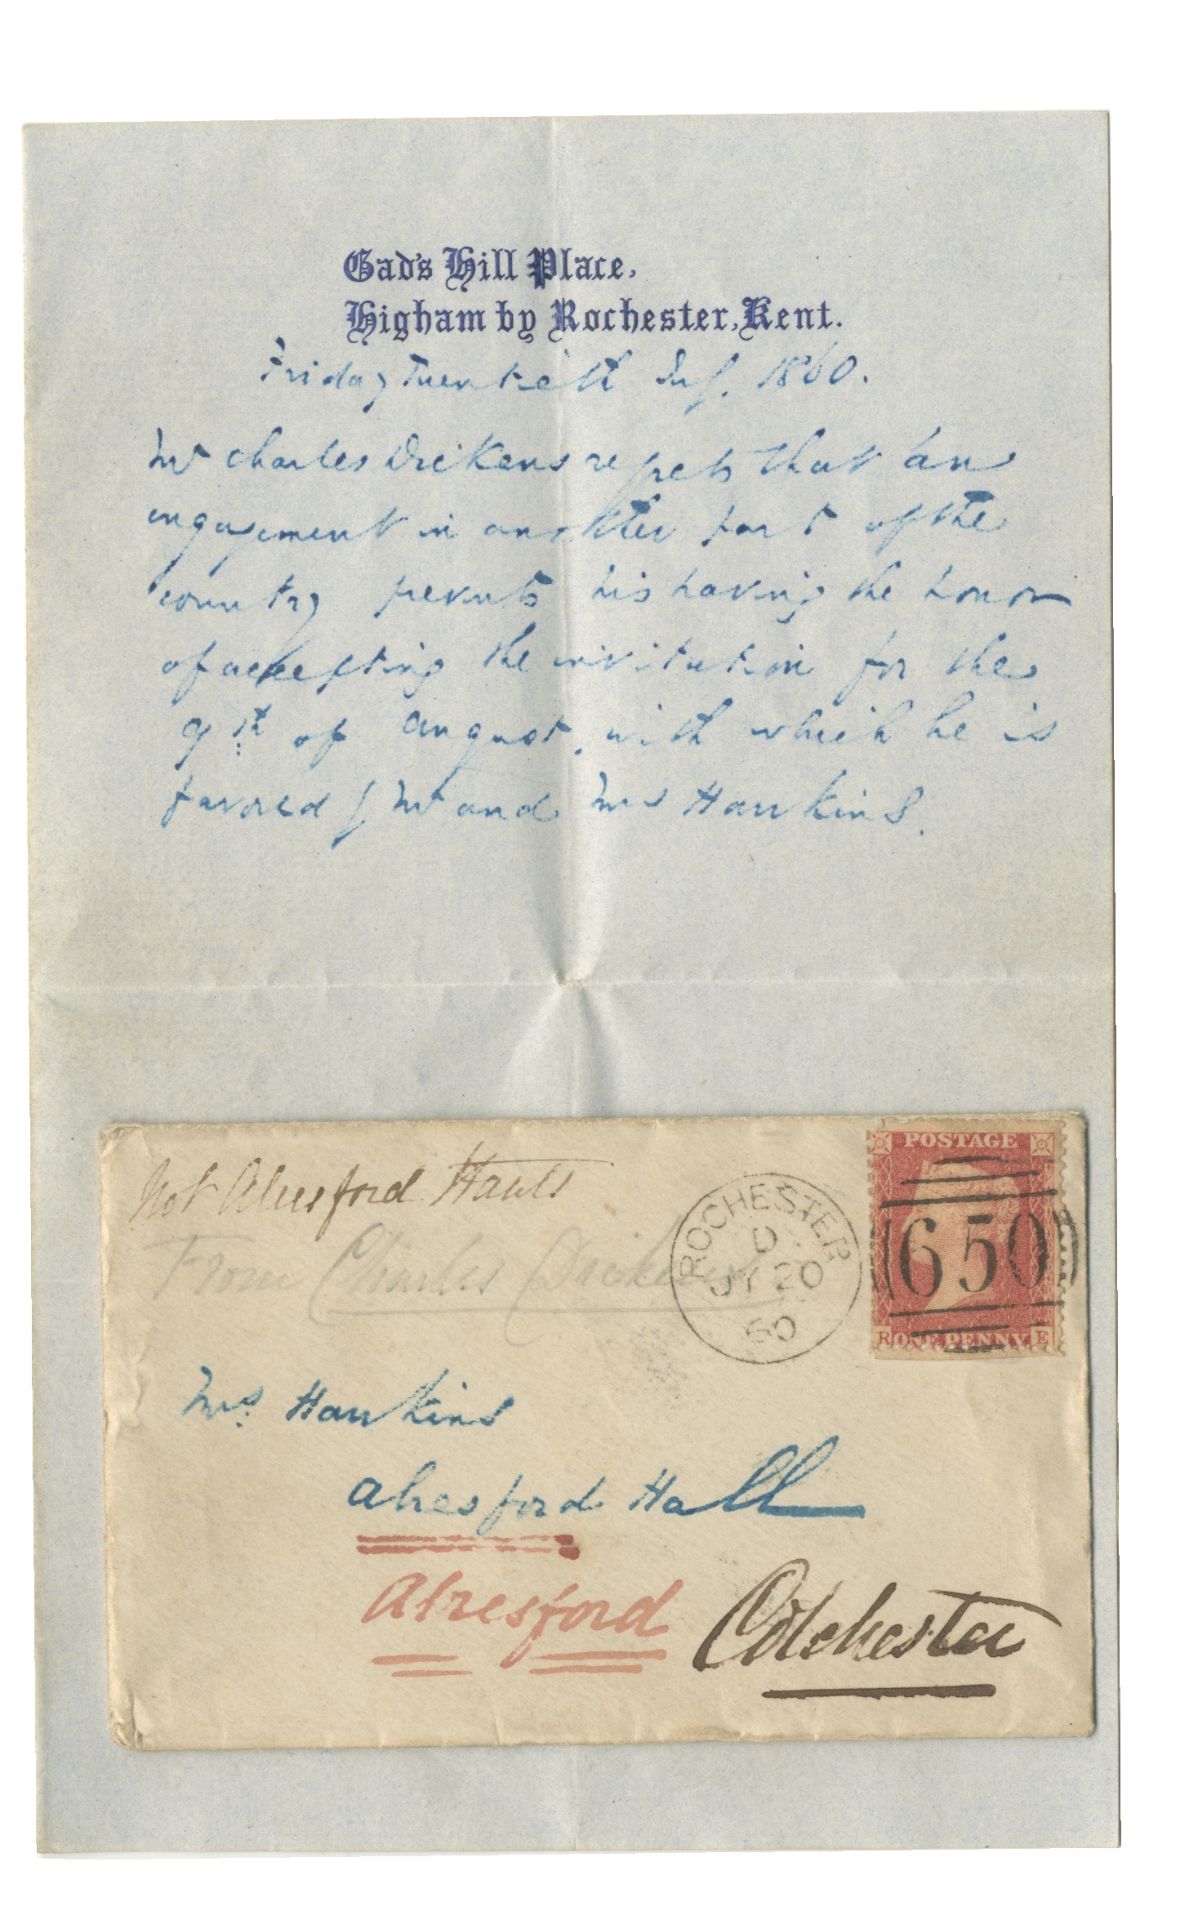 Gad's Hill Place,
Higham by Rochester, Kent.
Friday Twentieth July. 1860.
Mr Charles Dickens regrets that an
engagement in another part of the
country prevents his having the honor
of accepting the invitation for the
9th of August, with which he is
favored by Mr and Mrs Hawkins.
Not Alresford Hants
From Charles Dickens
ROCHESTER
D
JY 20
60
POSTAGE
650
R ONE PENNY E
Mrs. Hawkins
Alresford Hall
Alresford
Colchester